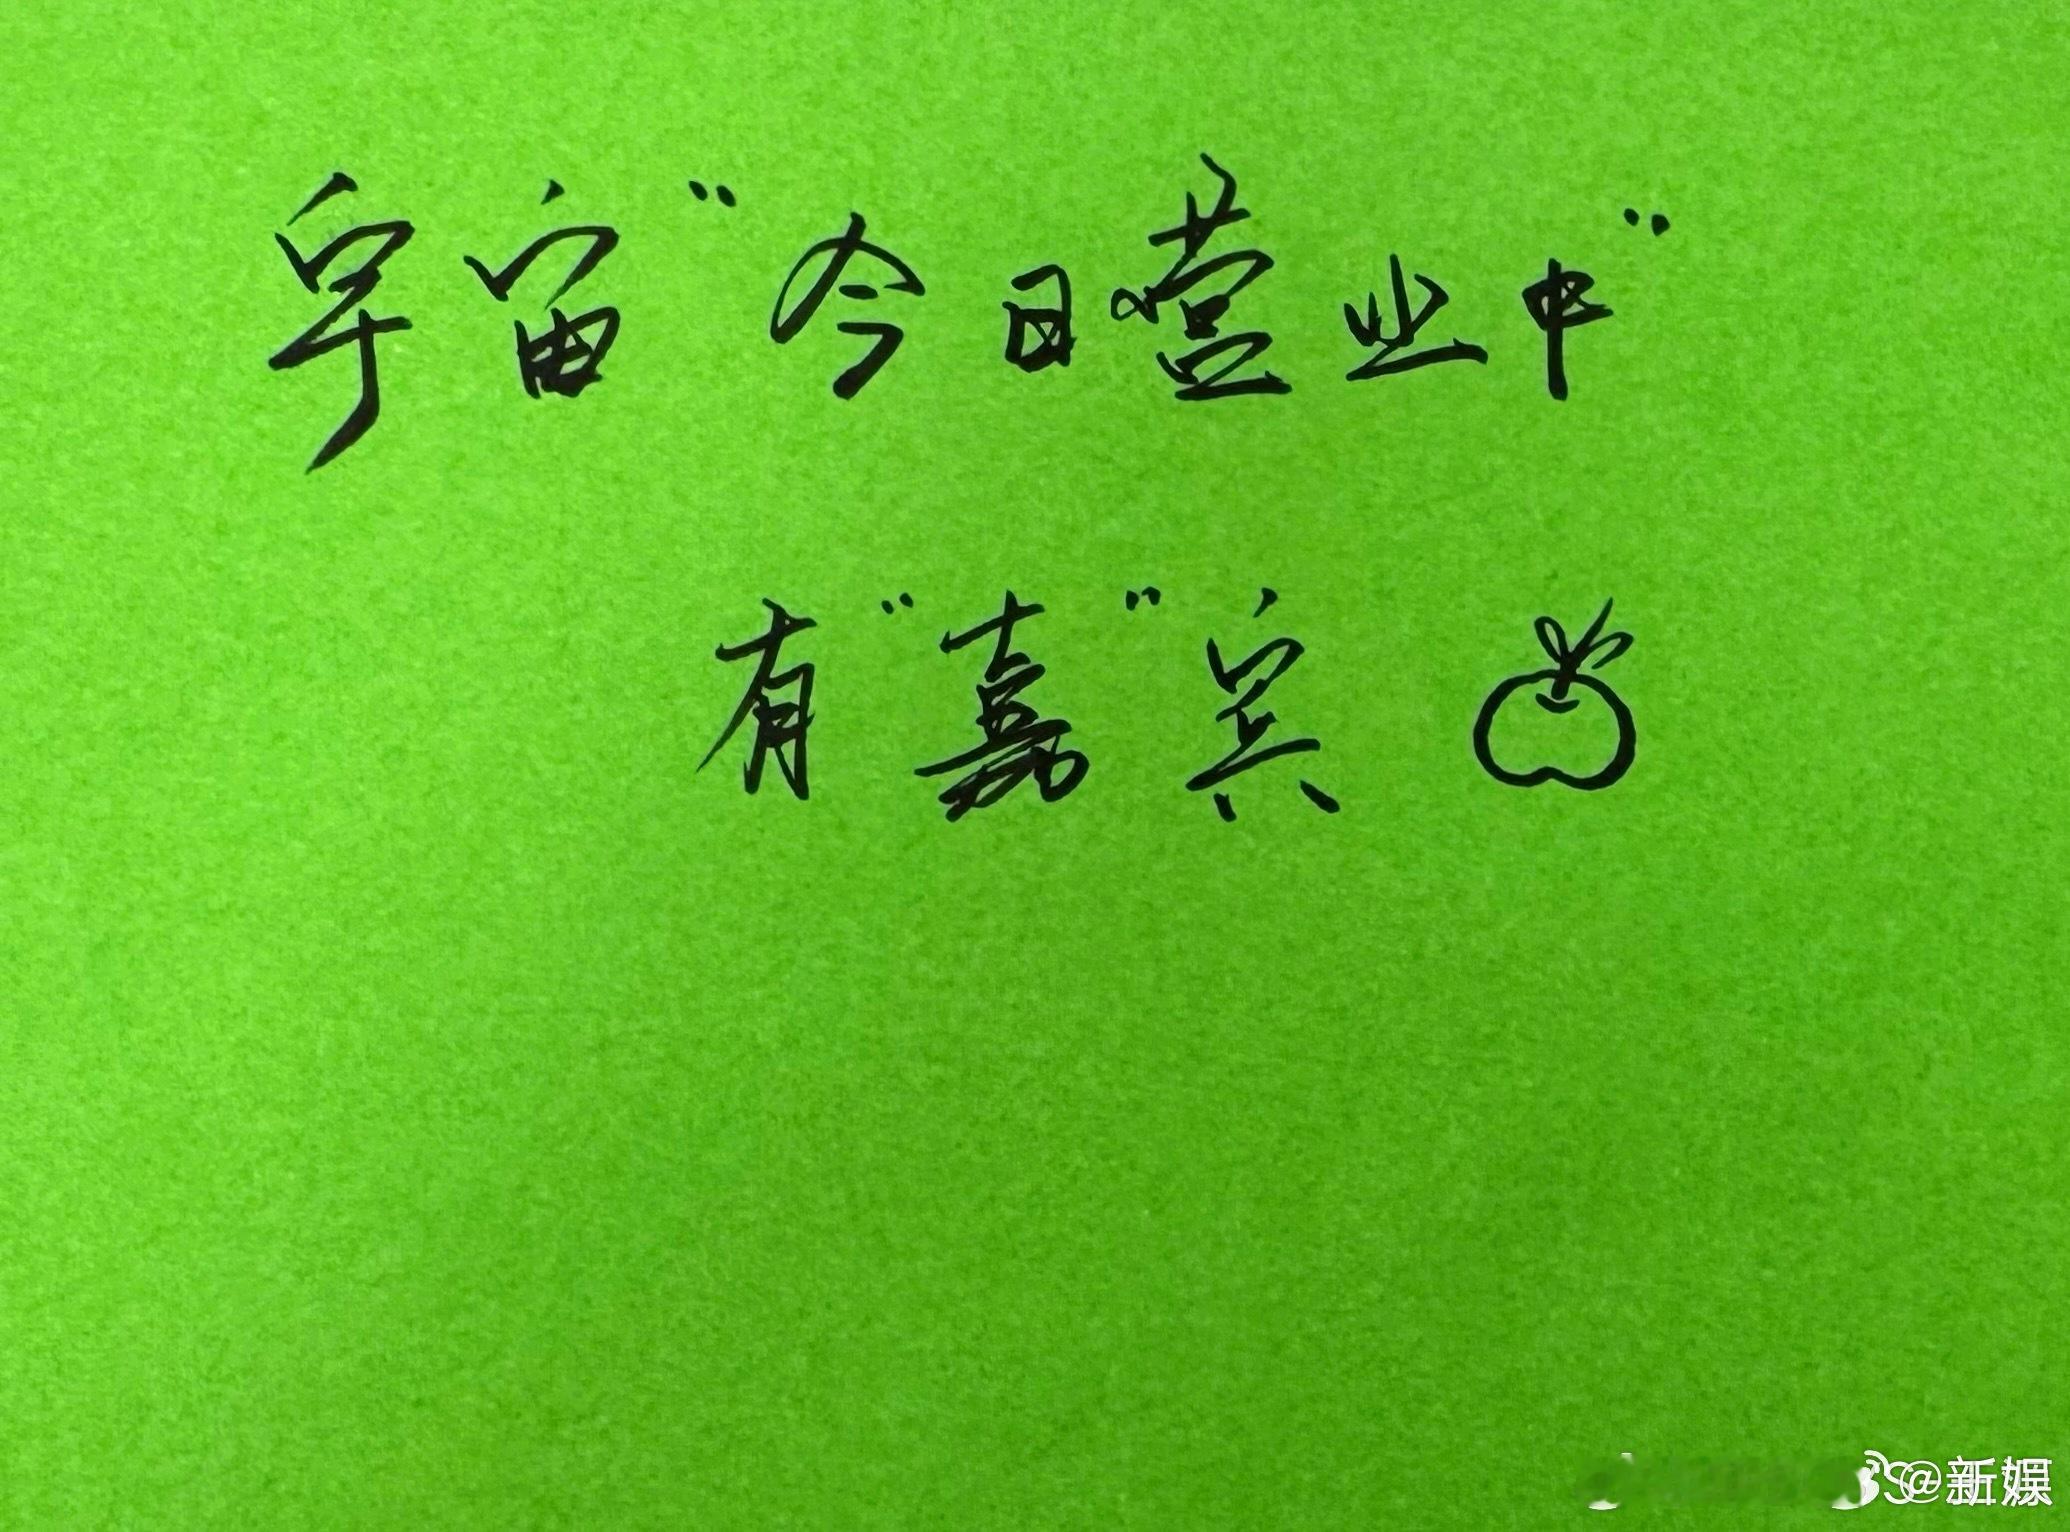 宇宙“今日营业中”
有“嘉”宾
@新娱